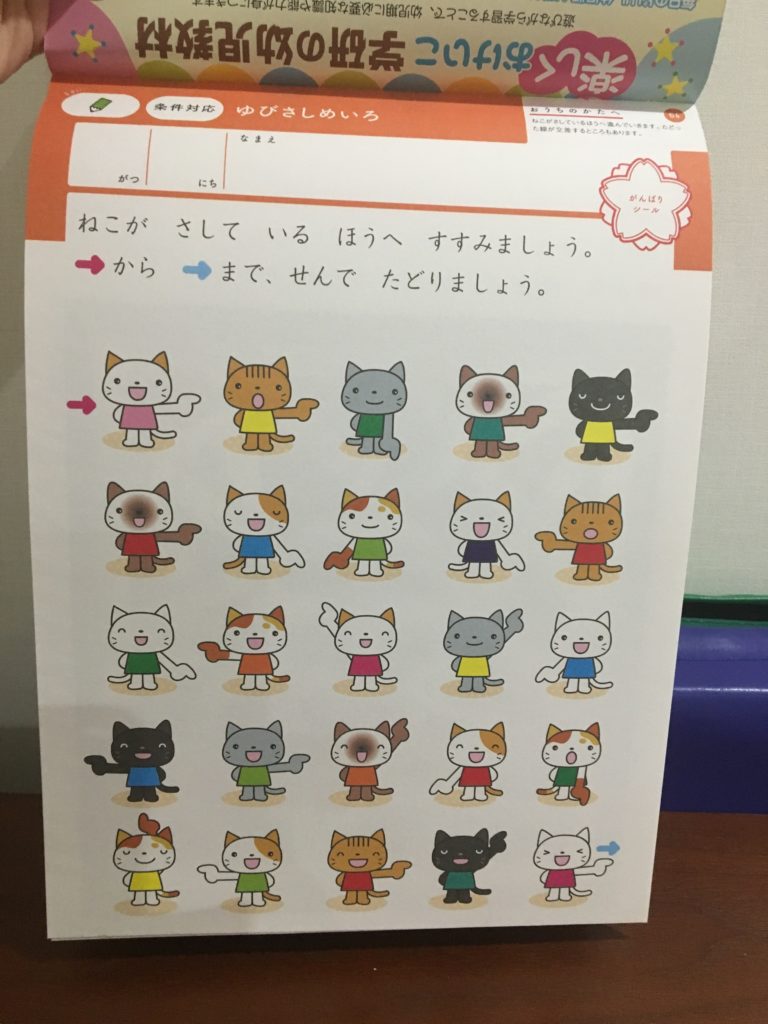 遊びながら学習することで、幼児期に必要な知識や能力が身につきます。
楽しくおけいこ 学研の幼児教材
条件対応
ゆびさしめいろ
おうちのかたへ
ねこがさしているほうへ進んでいきます。たどった線が交差するところもあります。
がつ
にち
なまえ
がんばり
シール
ねこが さして いる ほうへ すすみましょう。
から まで、せんで たどりましょう。